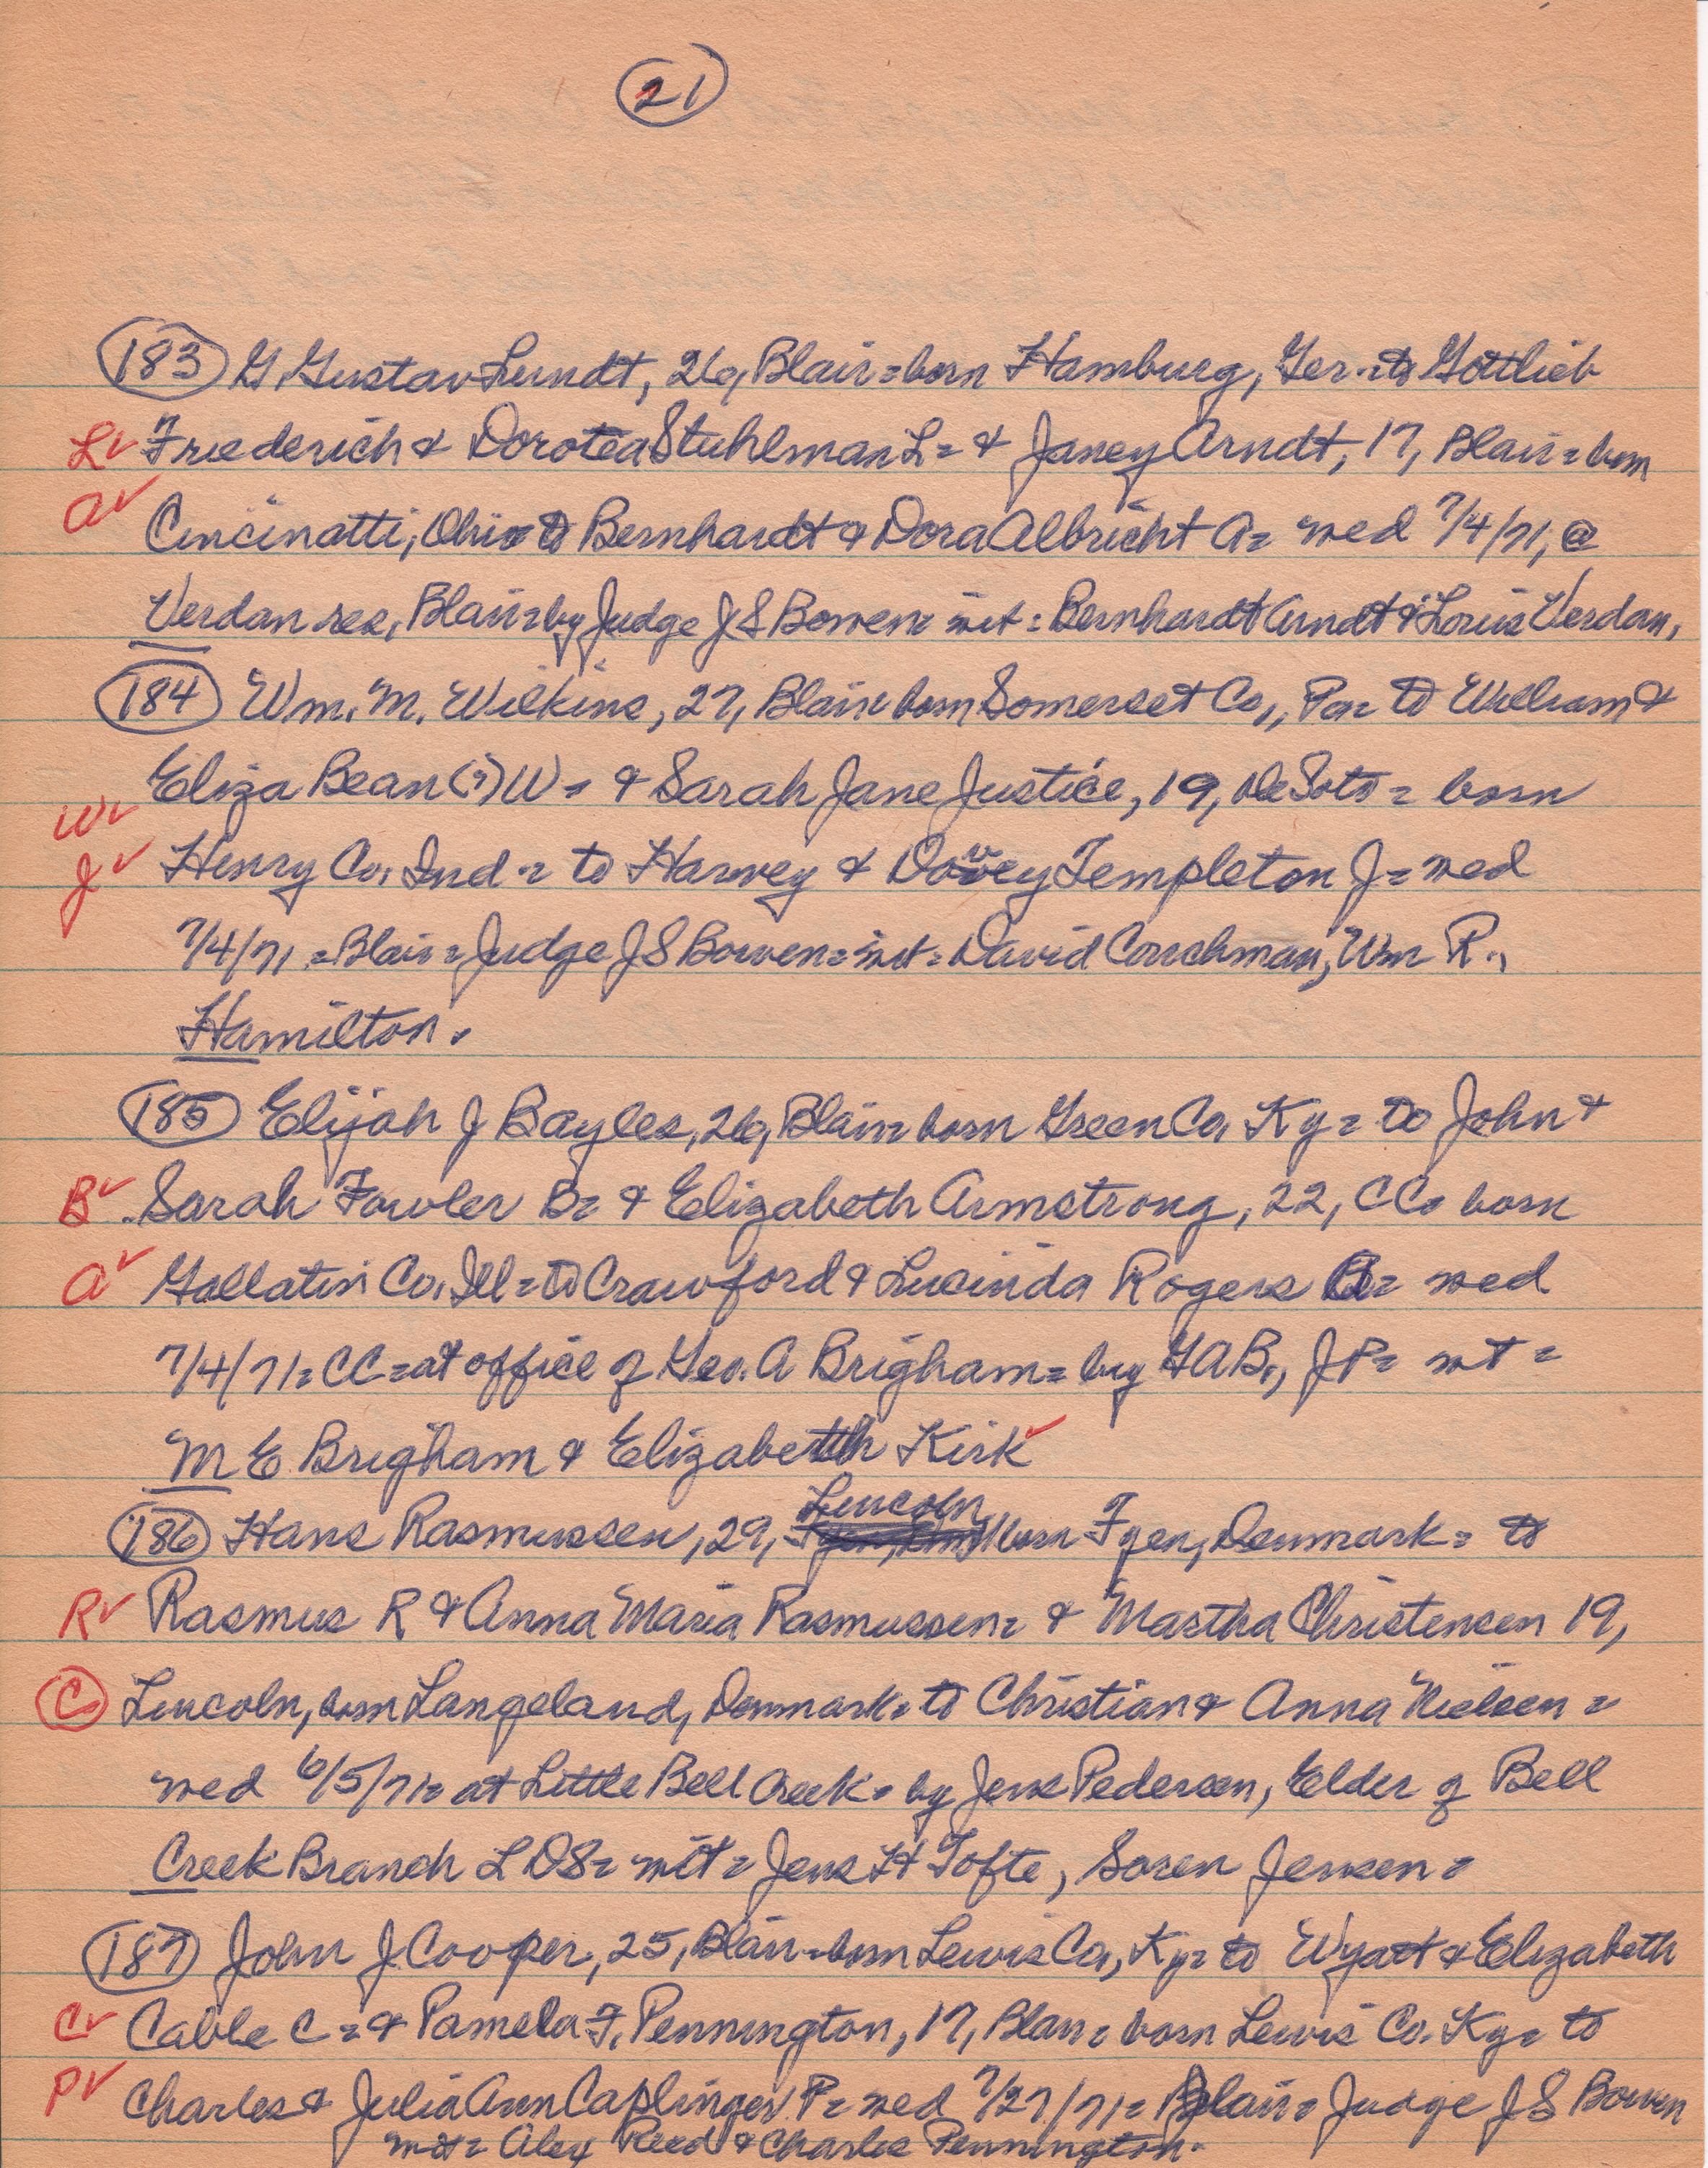 21
183 G. Gustav Lundt, 26, Blair = born Hamburg, Ger. = to Gottlieb
L✓ Friederich & Dorotea Stuhlman L = & Janey Arndt, 17, Blair = born
a✓ Cincinatti, Ohio = to Bernhardt & Dora Albricht A = wed 7/4/71, @
Verdan res, Blair = by Judge J S Bowen = wit = Bernhardt Arndt & Louis Verdan,
184 Wm. M. Wilkins, 27, Blair = born Somerset Co., Pa = to William &
Eliza Bean (?) W = & Sarah Jane Justice, 19, DeSoto = born
W✓
J✓ Henry Co. Ind. = to Harvey & Dovey Templeton J = wed
7/4/71 = Blair = Judge J S Bowen = wit = David Couchman, Wm R.,
Hamilton.
185 Elijah J Bayles, 26, Blair = born Green Co, Ky = to John &
B✓ Sarah Fowler B = & Elizabeth Armstrong, 22, CC = born
a✓ Gallatin Co. Ill = to Crawford & Lucinda Rogers A = wed
7/4/71 = CC = at office of Geo. A Brigham = by GAB., JP = wt =
M E Brigham & Elizabeth Kirk ✓
Lincoln
186 Hans Rasmussen, 29, born Fyen, Denmark = to
R✓ Rasmus R & Anna Maria Rasmussen = & Martha Christensen 19,
C Lincoln, born Langeland, Denmark = to Christian & Anna Nielsen =
wed 6/5/71 = at Little Bell Creek = by Jens Pedersen, Elder of Bell
Creek Branch LDS = wit = Jens H Tofte, Soren Jensen =
187 John J. Cooper, 25, Blair = born Lewis Co, Ky = to Wyatt & Elizabeth
C✓ Cable C = & Pamela F. Pennington, 17, Blair = born Lewis Co. Ky = to
P✓ Charles & Julia Ann Caplinger P = wed 7/27/71 = Blair = Judge J S Bowen
wit = Alex Reed & Charles Pennington.